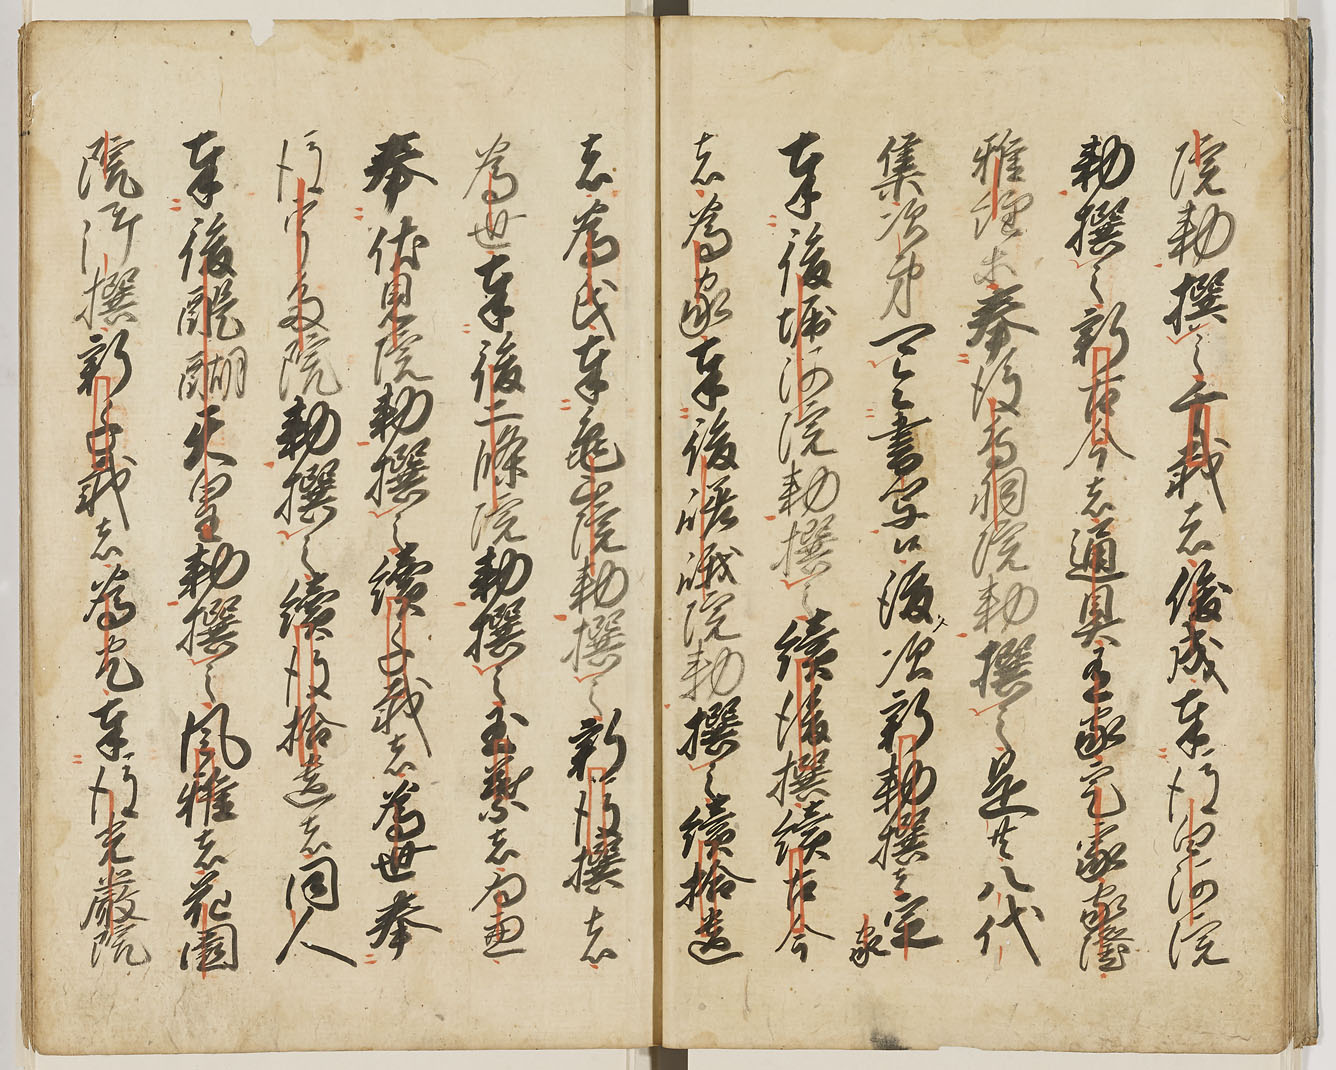 院勅撰之千載者俊成奉後白河院
勅撰之新古今者通具有家定家家隆
雅経等奉後鳥羽院勅撰之是共八代
集次第
一々書写
後次新勅撰者定家
奉後堀河院勅撰之続後撰続古今
者為家奉後嵯峨院勅撰之続拾遺
者為氏奉亀山院勅撰之新後撰者
為世奉後二條院勅撰之玉葉者為兼
奉伏見院勅撰之続千載者為世奉
後宇多院勅撰之続後拾遺者同人
奉後醍醐天皇勅撰之風雅者花園
院御撰新千載者為定奉後光厳院